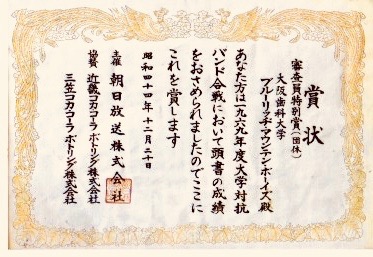 賞状
審査員特別賞(団体)
大阪歯科大学
ブルーリッヂ・マウンテンボーイズ殿
あなた方は一九六九年度大学対抗
バンド合戦において頭書の成績
をおさめられましたのでここに
これを賞します
昭和四十四年十二月二十日
主催 朝日放送株式会社
協賛 近畿コカ・コーラボトリング株式会社
三笠コカ・コーラボトリング株式会社